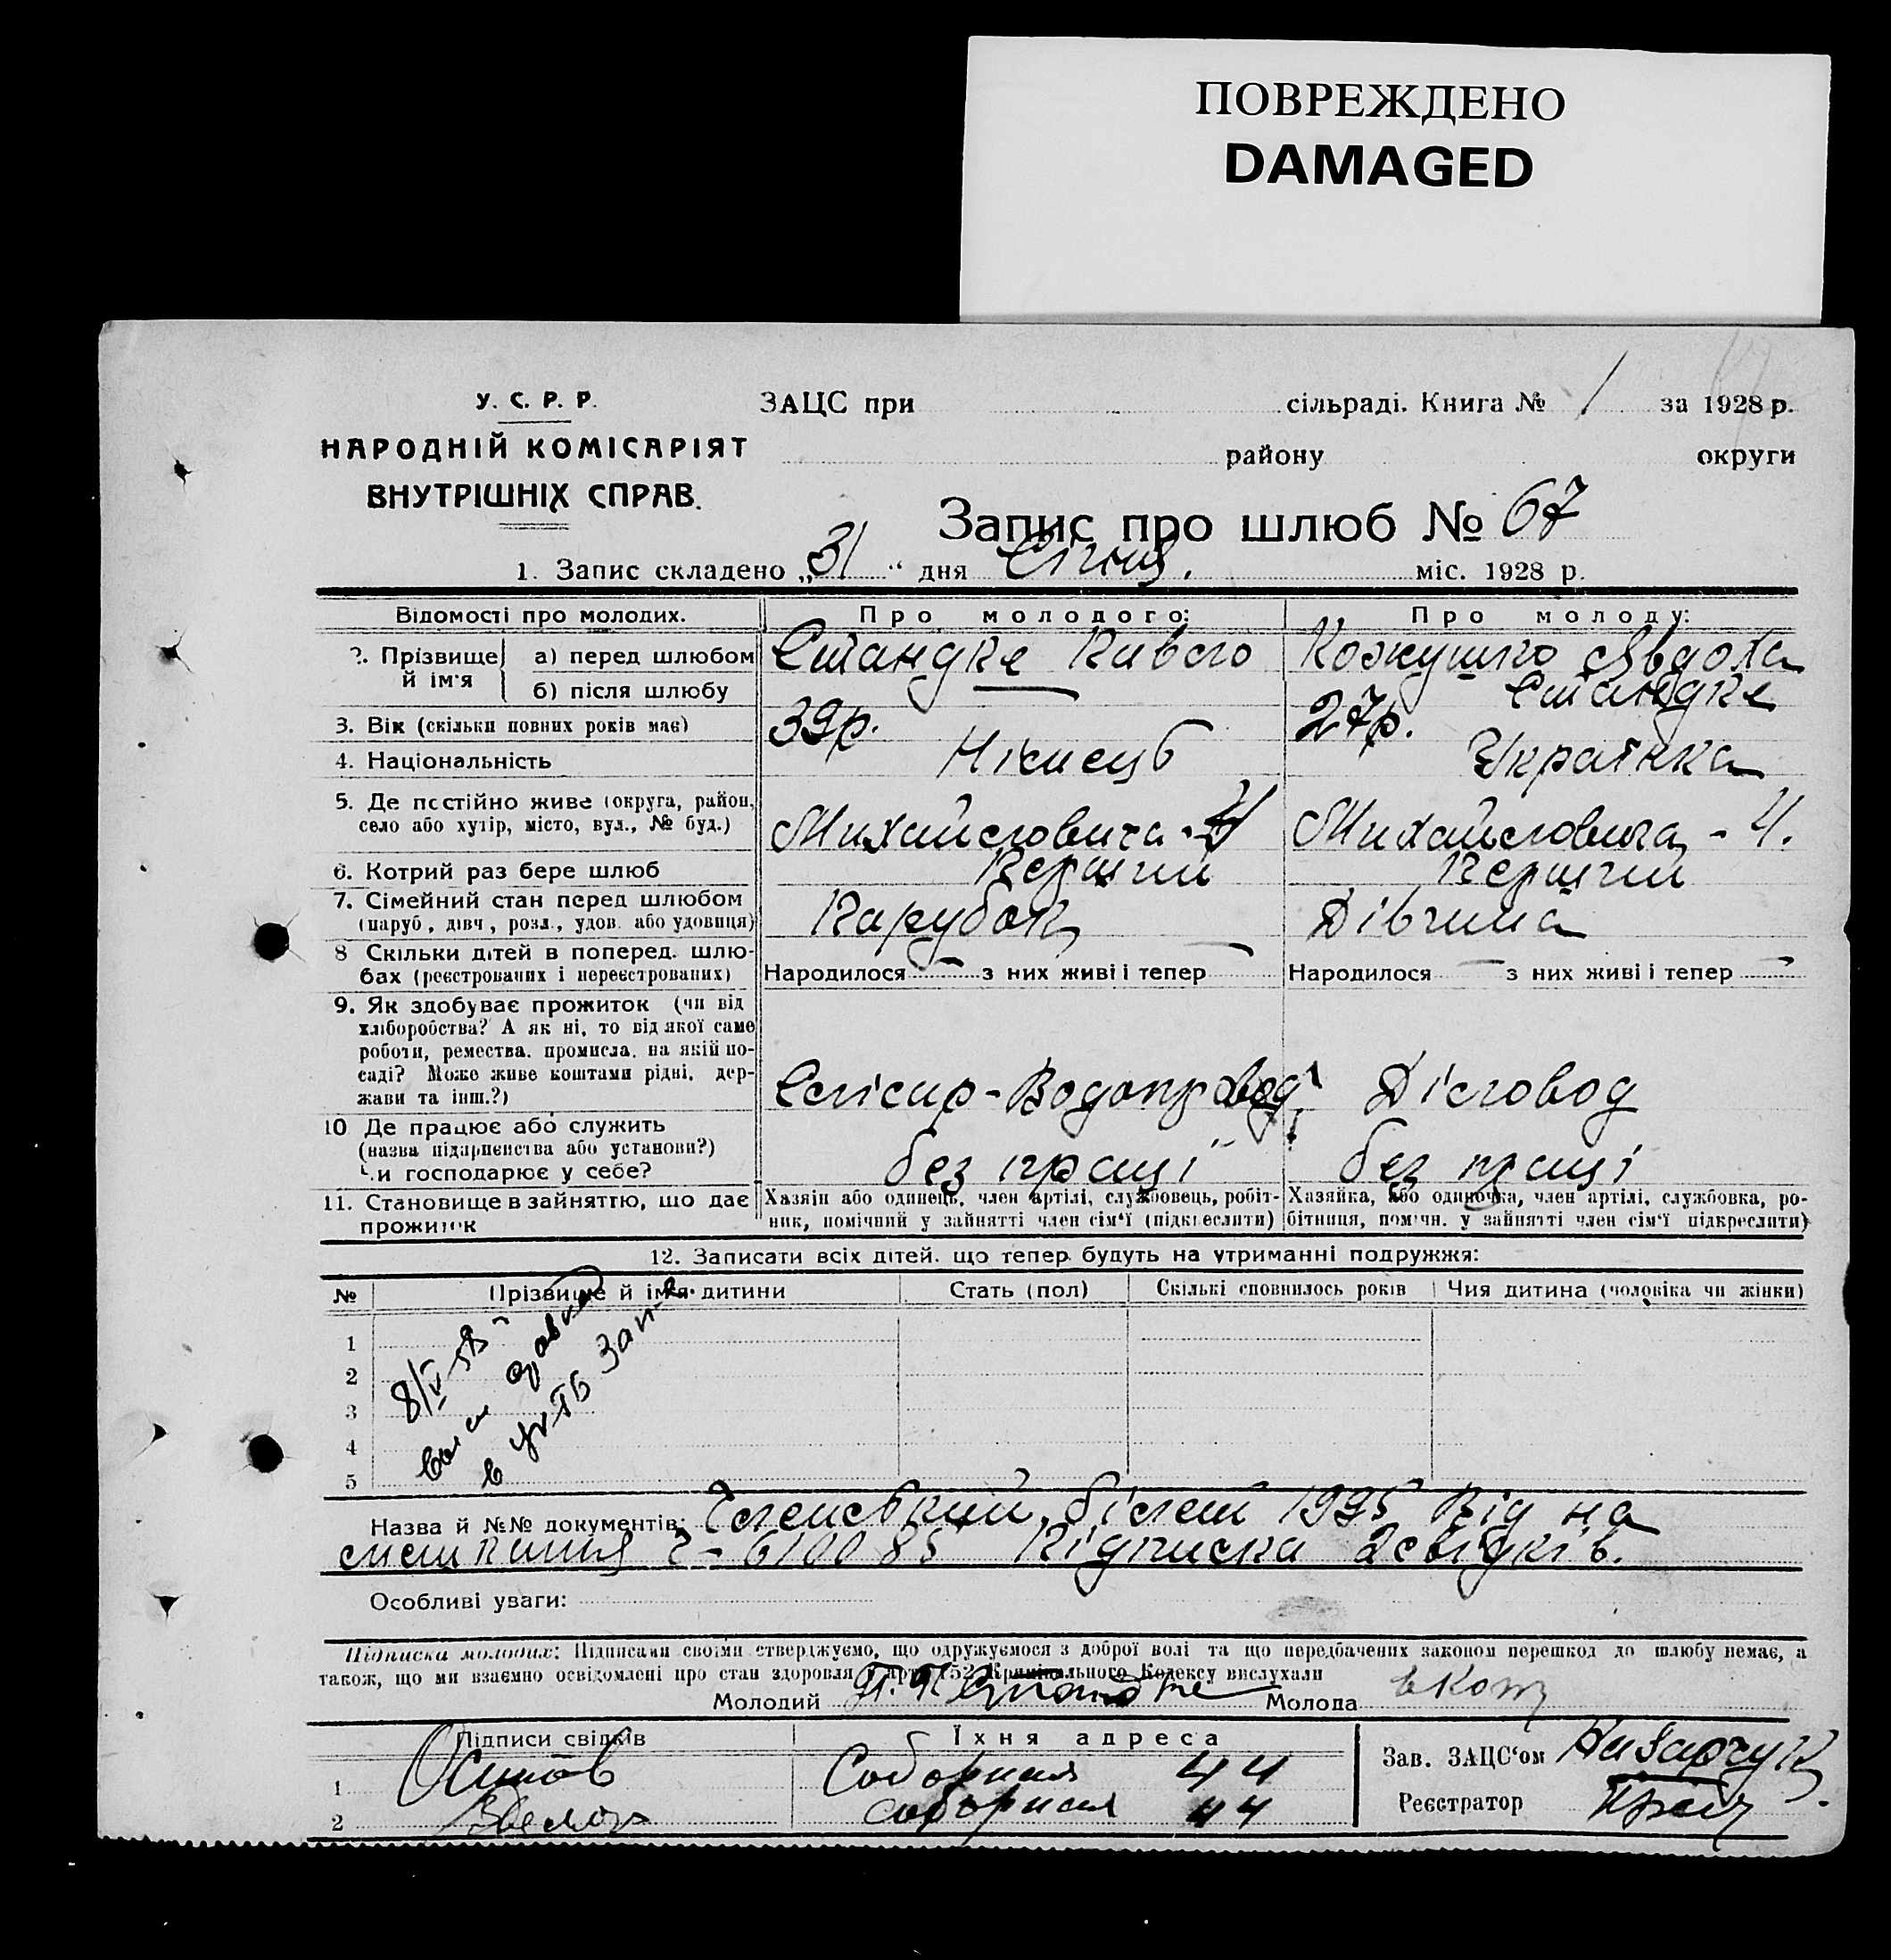 ПОВРЕЖДЕНО
DAMAGED
У. С. Р. Р.
НАРОДНІЙ КОМІСАРІЯТ
ВНУТРІШНІХ СПРАВ.
ЗАЦС при сільраді. Книга № 1 за 1928 р.
району округи
Запис про шлюб № 67
1. Запис складено „31“ дня Січня. міс. 1928 р.
Відомості про молодих. Про молодого: Про молоду:
2. Прізвище й ім'я а) перед шлюбом Штандке Павло Кожушко Явдоха
б) після шлюбу — Штандке
3. Вік (скільки повних років має) 39р. 27р.
4. Національність Німець Українка
5. Де постійно живе (округа, район,
село або хутір, місто, вул., № буд.) Михайловича - 4 Михайловича - 4.
6. Котрий раз бере шлюб Перший Перший
7. Сімейний стан перед шлюбом
(паруб., дівч., розл., удов. або удовиця) Парубок Дівчина
8 Скільки дітей в поперед. шлю-
бах (реєстрованих і нереєстрованих) Народилося — з них живі і тепер — Народилося — з них живі і тепер —
9. Як здобуває прожиток (чи від
хліборобства? А як ні, то від якої саме
роботи, ремества, промисла, на якій по-
саді? Може живе коштами рідні, дер-
жави та інш.?) Слісар-Водопровод. Діловод
10 Де працює або служить
(назва підприємства або установи?)
Чи господарює у себе? без праці без праці
11. Становище в зайняттю, що дає
прожиток
Хазяїн або одинець, член артілі, службовець, робіт-
ник, помічний у зайнятті член сім'ї (підкреслити)
Хазяйка, або одиночка, член артілі, службовка, ро-
бітниця, помічн. у зайнятті член сім'ї підкреслити)
12. Записати всіх дітей, що тепер будуть на утриманні подружжя:
№ Прізвище й ім'я дитини Стать (пол) Скількі сповнилось років Чия дитина (чоловіка чи жінки)
1
2
3
4
5
8/V-58
в
Назва й №№ документів: Членський білет 1995 Від на
мешкання 2- 610085 Підписка 2 свідків.
Особливі уваги:
Підписка молодих: Підписами своїми стверджуємо, що одружуємося з доброї волі та що передбачених законом перешкод до шлюбу немає, а
також, що ми взаємно освідомлені про стан здоровля й арт. 152 Кримінального Кодексу вислухали
Молодий П. Штандке Молода
Підписи свідків Їхня адреса
1 Соборная 44
2 Соборная 44
Зав. ЗАЦС'ом Назарчук
Реєстратор